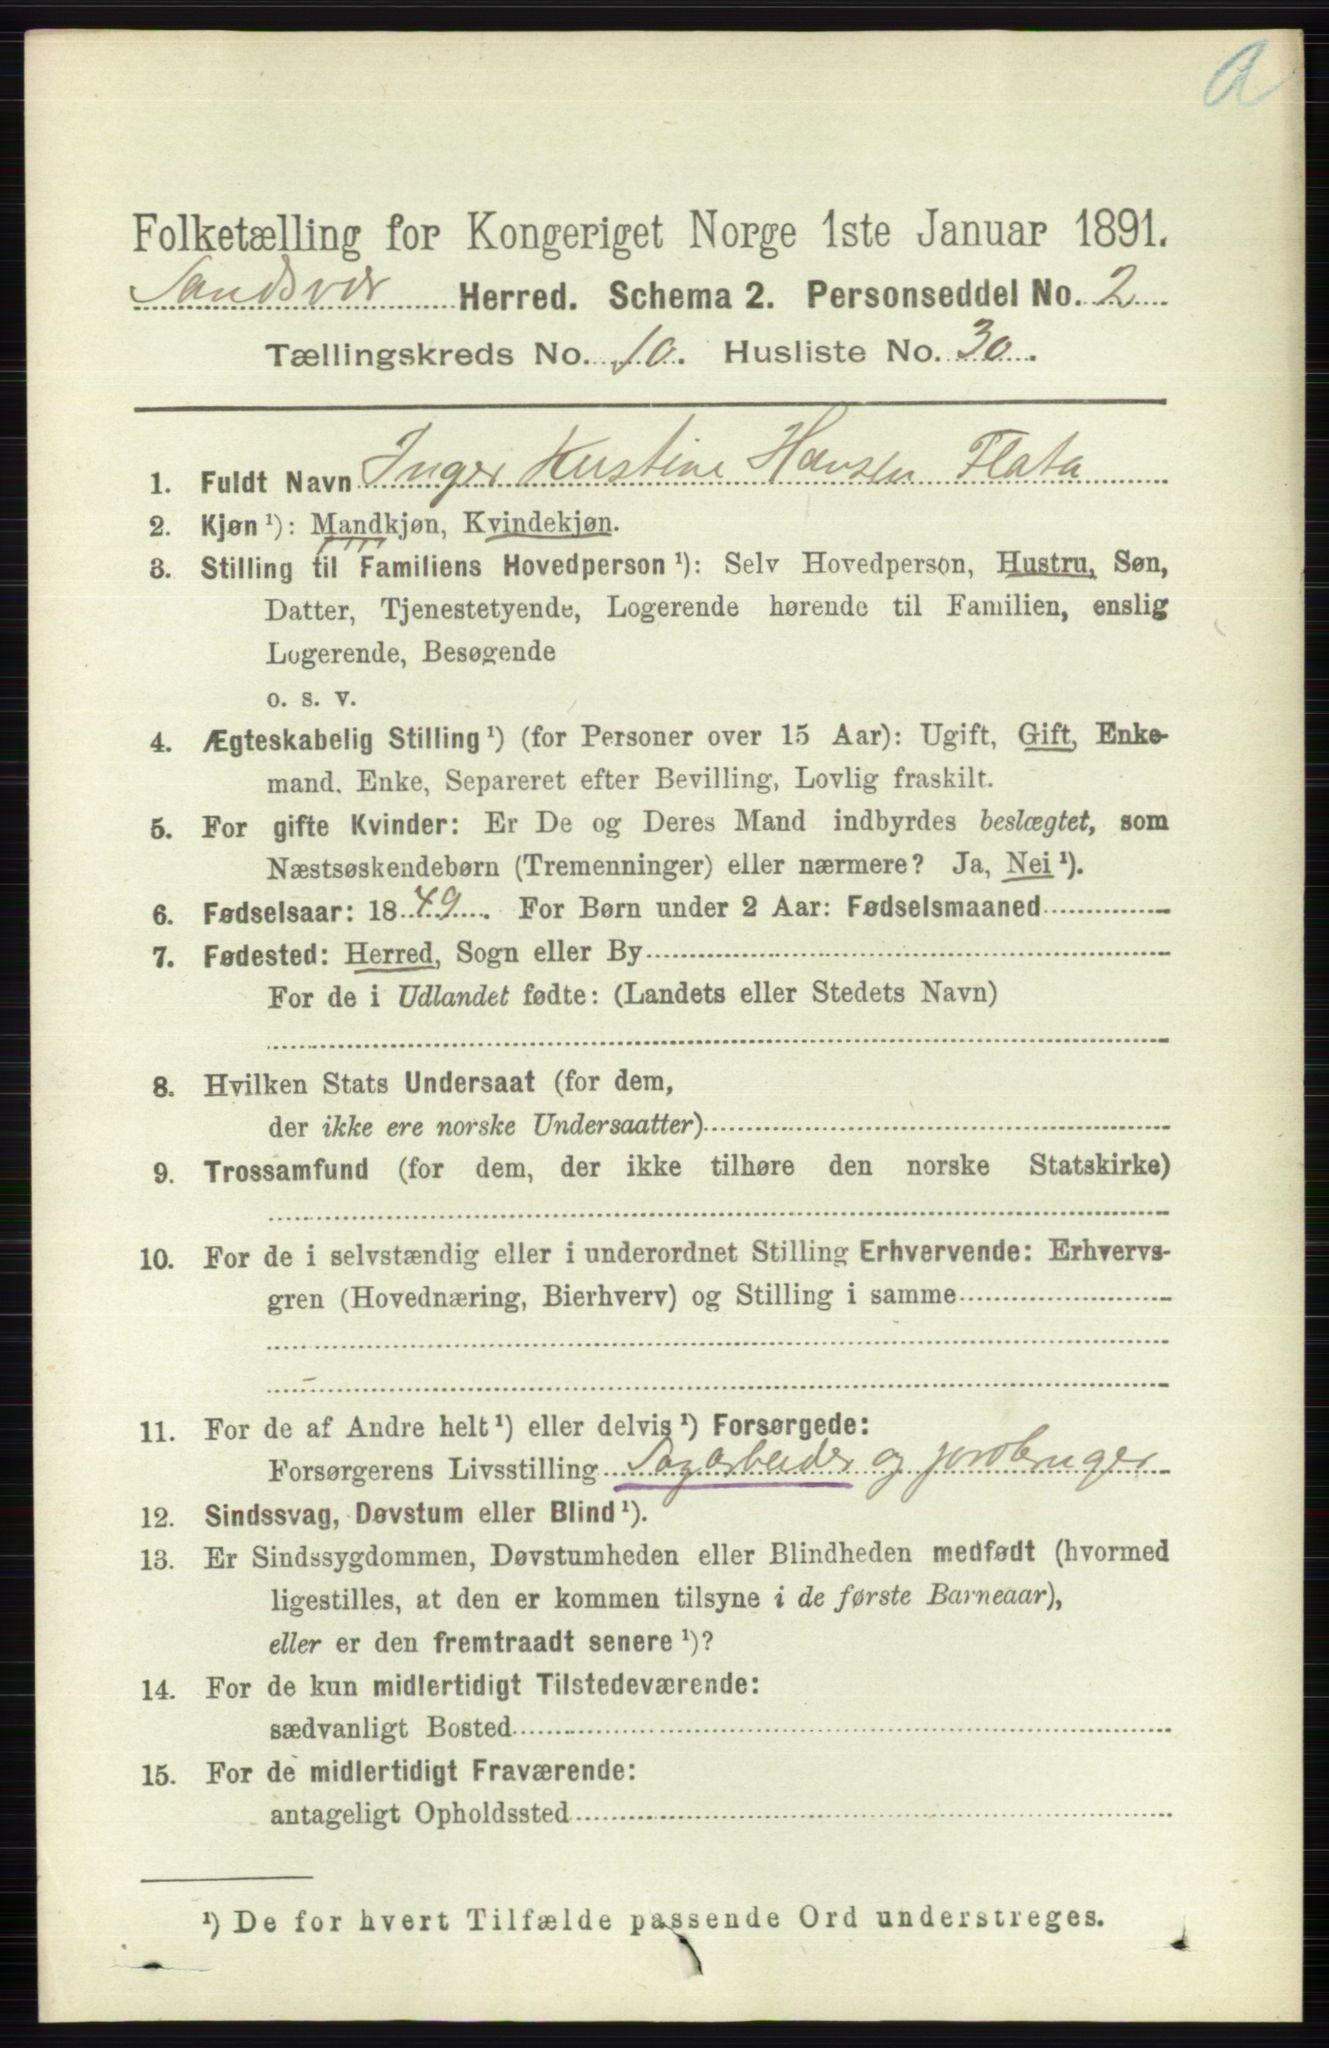 a
Folketælling for Kongeriget Norge 1ste Januar 1891.
Sandsvær Herred. Schema 2. Personseddel No. 2
Tællingskreds No. 10. Husliste No. 30.
1. Fuldt Navn Inger Kirstine Hansen Flata
2. Kjøn ¹): Mandkjøn, Kvindekjøn.
3. Stilling til Familiens Hovedperson ¹): Selv Hovedperson, Hustru, Søn,
Datter, Tjenestetyende, Logerende hørende til Familien, enslig
Logerende, Besøgende
o. s. v.
4. Ægteskabelig Stilling ¹) (for Personer over 15 Aar): Ugift, Gift, Enke-
mand, Enke, Separeret efter Bevilling, Lovlig fraskilt.
5. For gifte Kvinder: Er De og Deres Mand indbyrdes beslægtet, som
Næstsøskendebørn (Tremenninger) eller nærmere? Ja, Nei ¹).
6. Fødselsaar: 1849. For Børn under 2 Aar: Fødselsmaaned
7. Fødested: Herred, Sogn eller By
For de i Udlandet fødte: (Landets eller Stedets Navn)
8. Hvilken Stats Undersaat (for dem,
der ikke ere norske Undersaatter)
9. Trossamfund (for dem, der ikke tilhøre den norske Statskirke)
10. For de i selvstændig eller i underordnet Stilling Erhvervende: Erhvervs-
gren (Hovednæring, Bierhverv) og Stilling i samme
11. For de af Andre helt ¹) eller delvis ¹) Forsørgede:
Forsørgerens Livsstilling Sagarbeider og jordbruger
12. Sindssvag, Døvstum eller Blind ¹).
13. Er Sindssygdommen, Døvstumheden eller Blindheden medfødt (hvormed
ligestilles, at den er kommen tilsyne i de første Barneaar),
eller er den fremtraadt senere ¹)?
14. For de kun midlertidigt Tilstedeværende:
sædvanligt Bosted
15. For de midlertidigt Fraværende:
antageligt Opholdssted
¹) De for hvert Tilfælde passende Ord understreges.